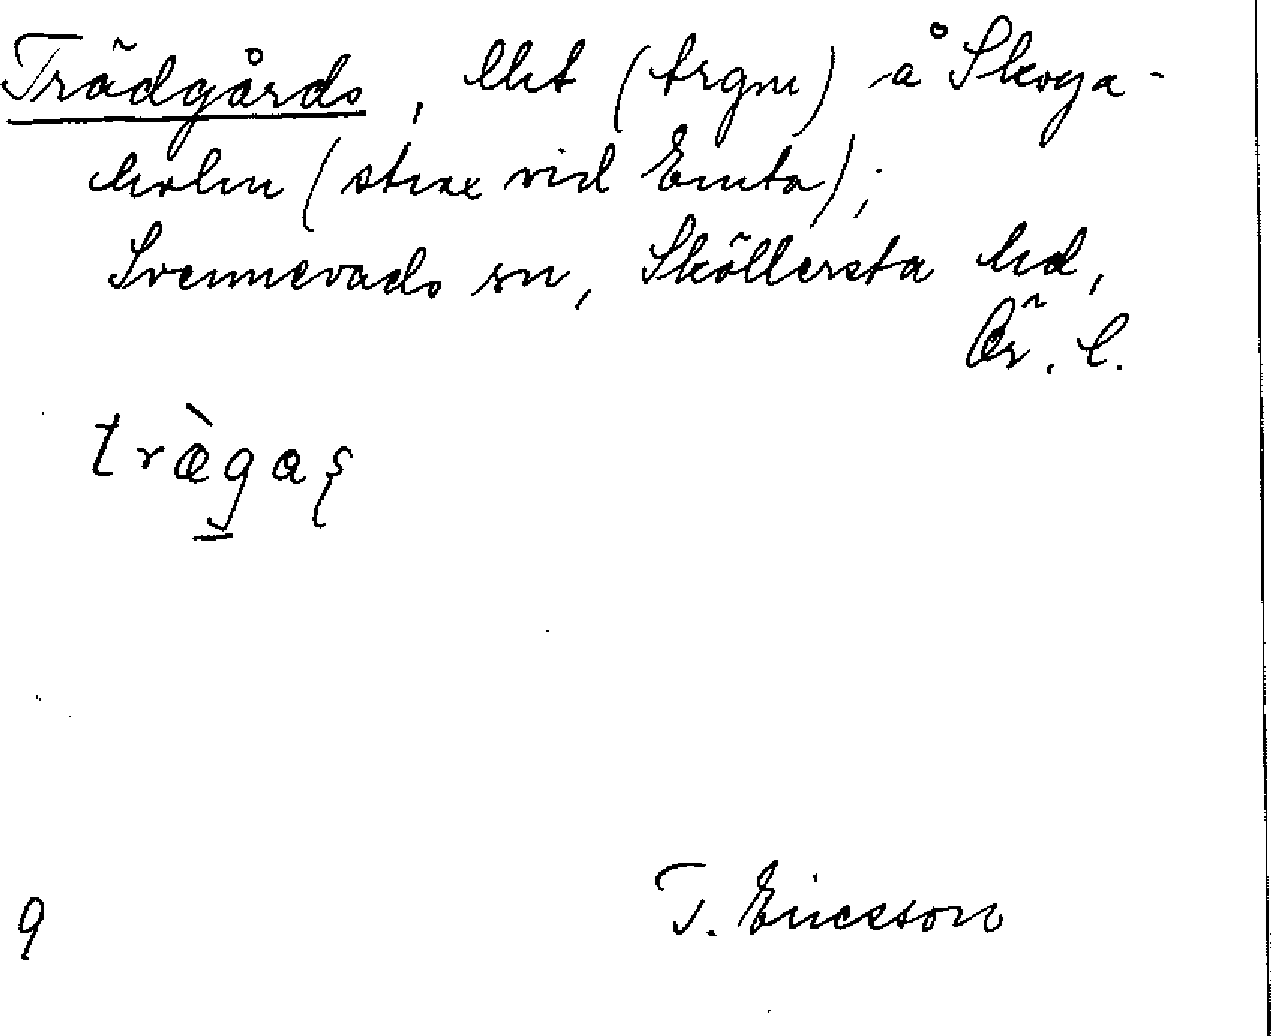 Trädgårds, lht (trgm) å Skoga-
holm (strax vid Emta);
Svennevads sn, Sköllersta hd,
Ör. l.
træ̀gaş
9
T. Ericsson